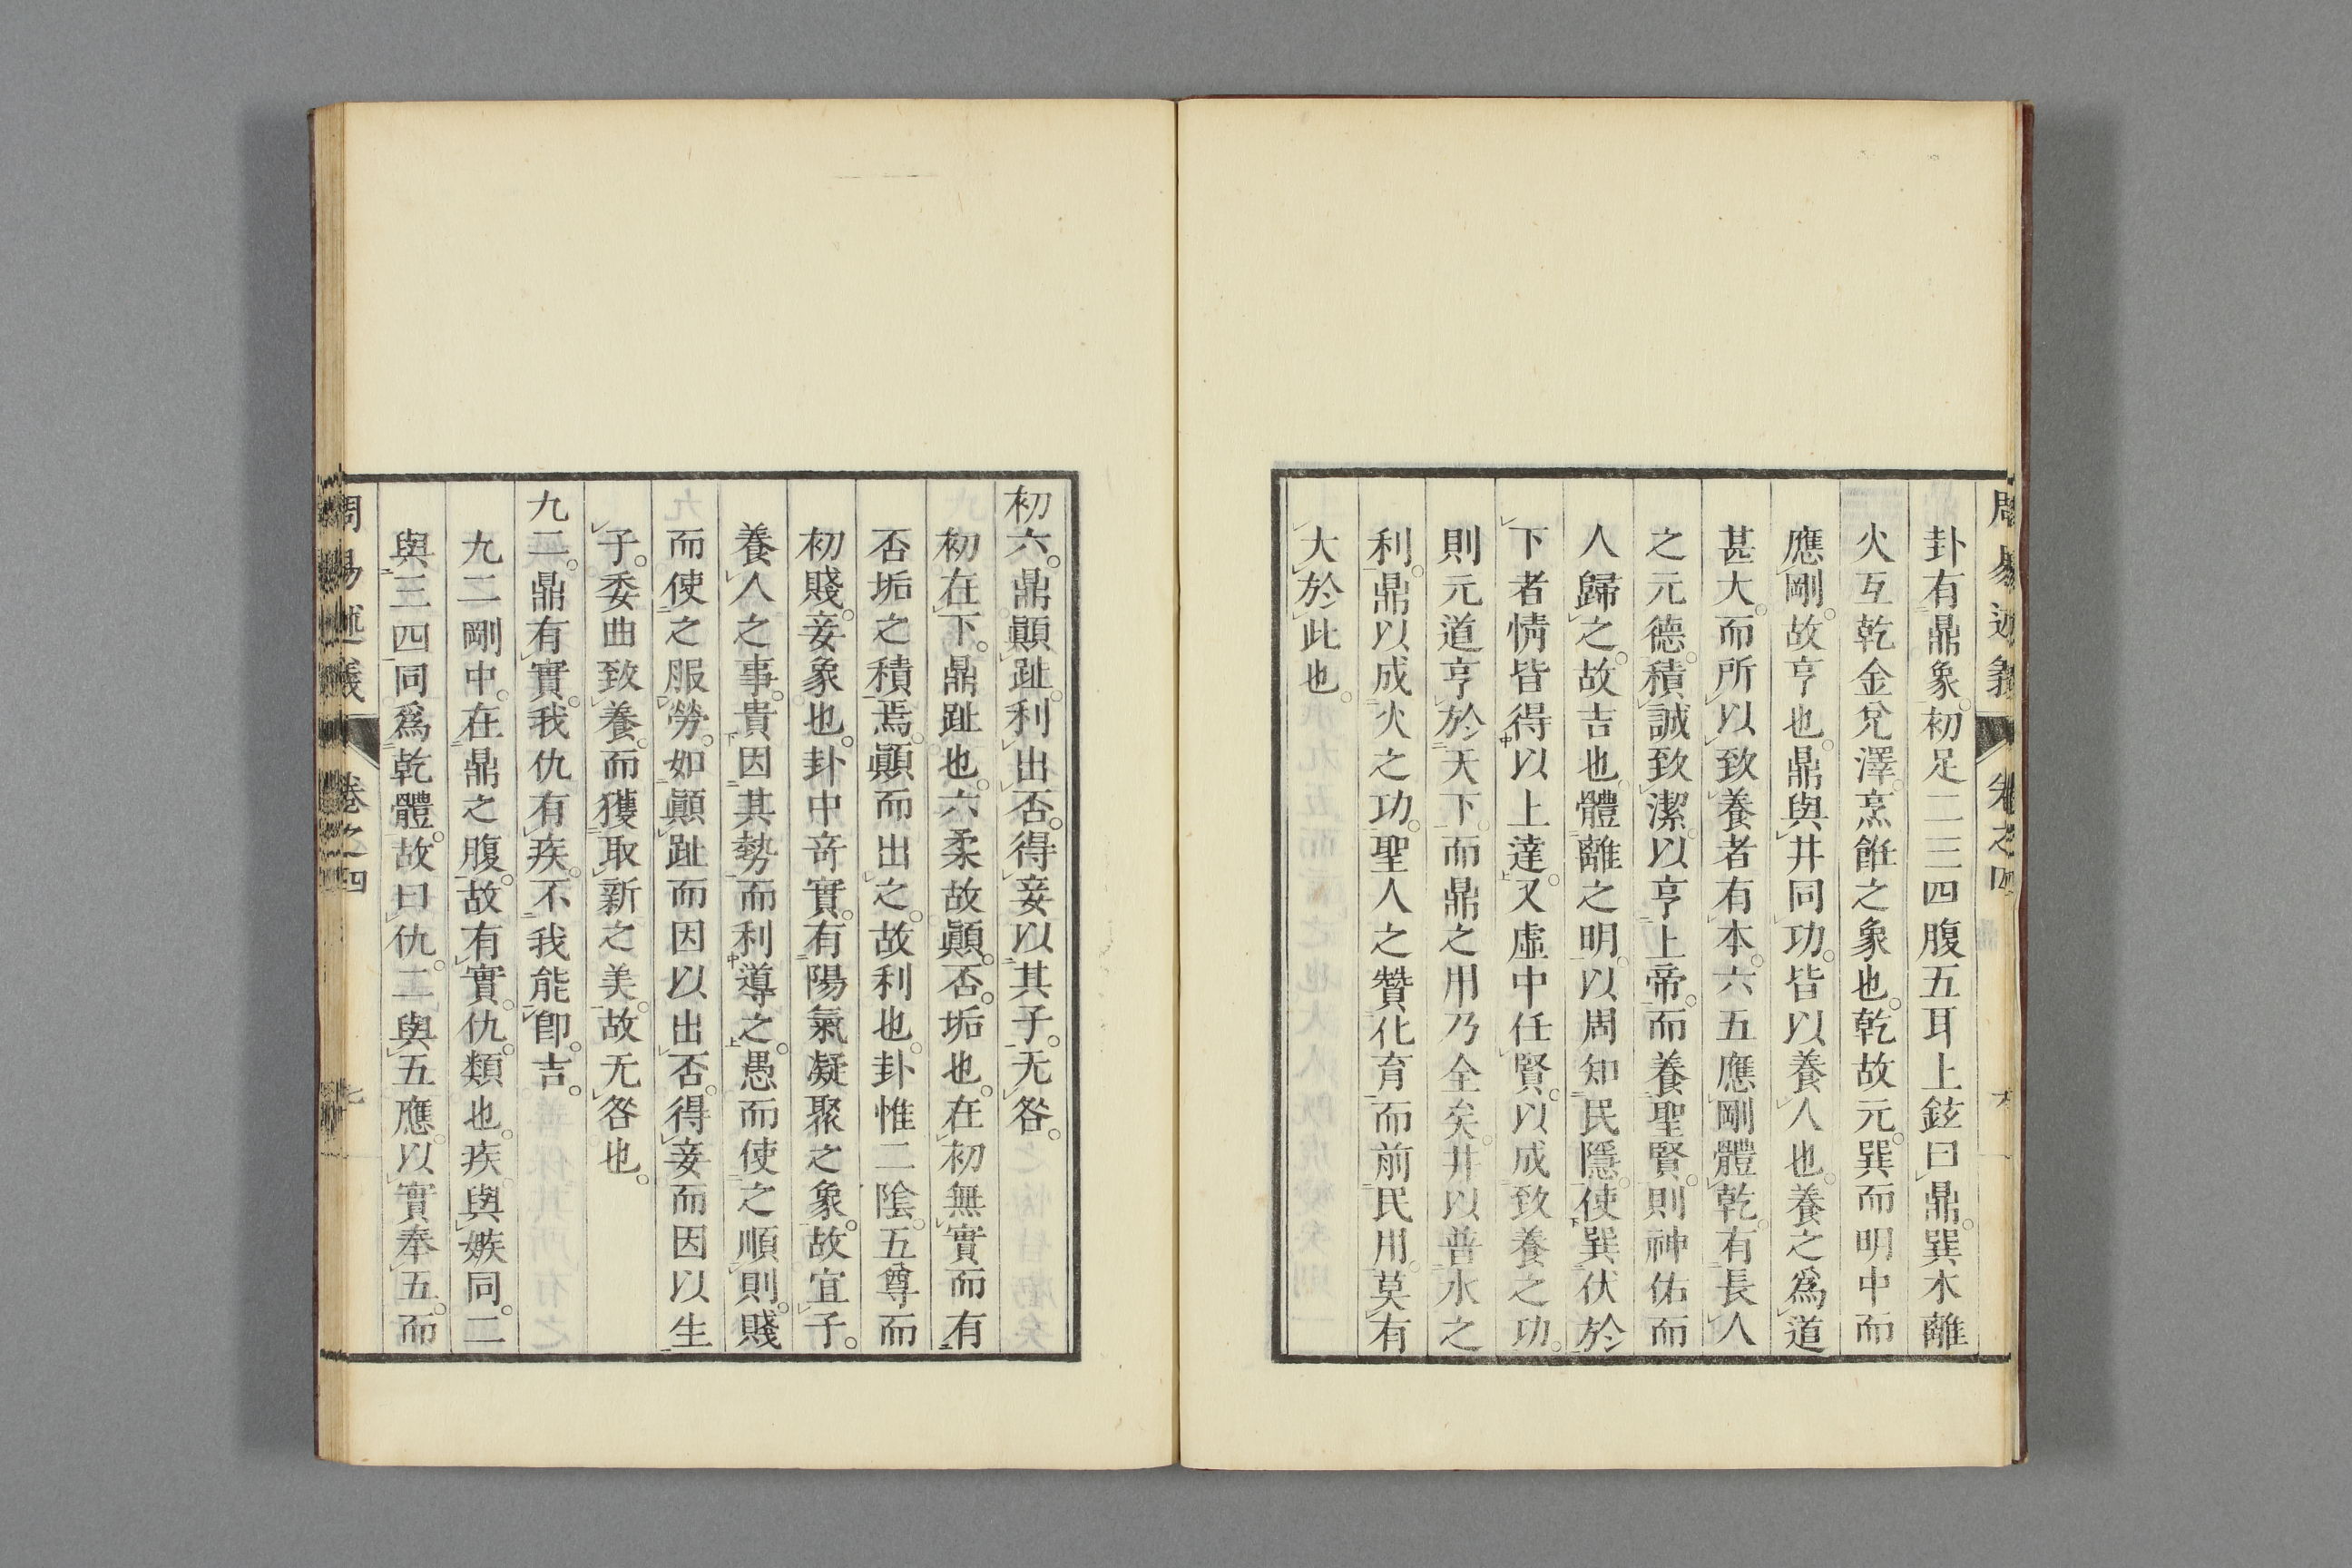 卦有鼎象。初足二三四腹五耳上鉉曰鼎。巽木離
火互乾金兌澤。烹飪之象也。乾故元。巽而明中而
應剛。故亨也。鼎與井同功。皆以養人也。養之爲道
甚大。而所以致養者有本。六五應剛體乾。有長人
之元德。積誠致潔。以亨上帝。而養聖賢。則神佑而
人歸之。故吉也。體離之明。以周知民隱。使巽伏於
下者情皆得以上達。又虛中任賢。以成致養之功。
則元道亨於天下。而鼎之用乃全矣。井以普水之
利。鼎以成火之功。聖人之贊化育而前民用。莫有
大於此也。
初六。鼎顚趾。利出否。得妾以其子。无咎。
初在下。鼎趾也。六柔故顚。否。垢也。在初無實而有
否垢之積焉。顚而出之。故利也。卦惟二陰。五尊而
初賤。妾象也。卦中竒實。有陽氣凝聚之象。故宜子。
養人之事。貴因其勢而利導之。愚而使之順則。賤
而使之服勞。如顚趾而因以出否。得妾而因以生
子。委曲致養。而獲取新之美。故无咎也。
九二。鼎有實。我仇有疾。不我能卽。吉。
九二剛中。在鼎之腹。故有實。仇。類也。疾與嫉同。二
與三四同爲乾體。故曰仇。二與五應。以實奉五。而
周易述義
卷之四
七